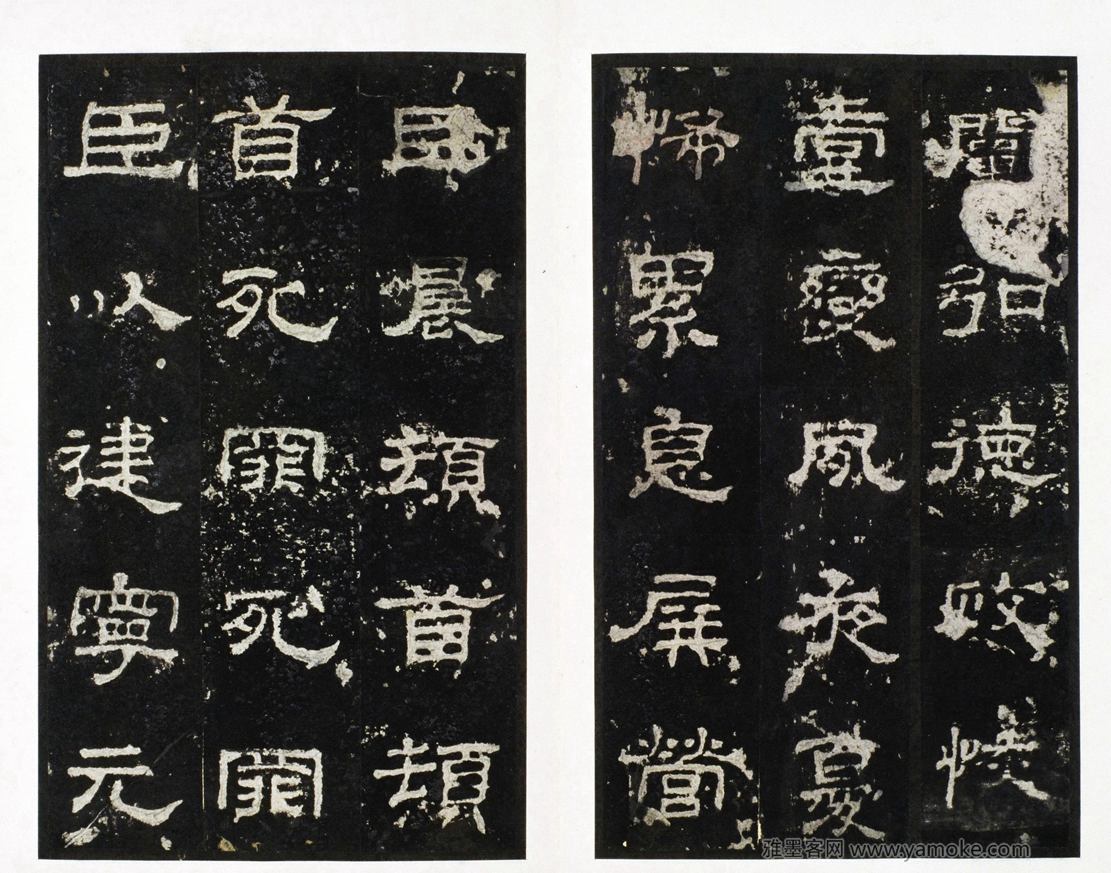 闡弘德政恢
壹變夙夜憂
怖累息屏營
臣晨頓首頓
首死罪死罪
臣以建寧元
雅墨客网 www.yamoke.com